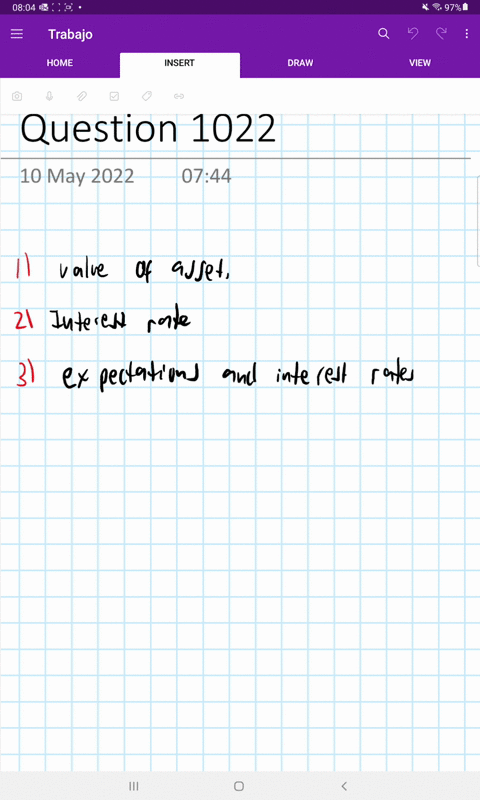 08:04 97%
Trabajo
HOME INSERT DRAW VIEW
Question 1022
10 May 2022 07:44
1) value of asset,
2) Interest rate
3) expectations and interest rates